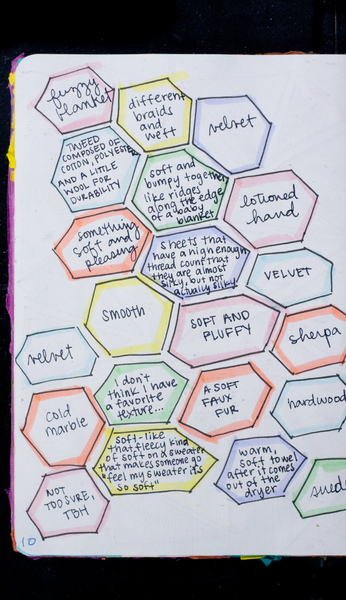 fuzzy
blanket
different
braids
and
weft
velvet
TWEED
COMPOSED OF
COTTON, POLYESTER
AND A LITTLE
WOOL FOR
DURABILITY
soft and
bumpy together
like ridges
along the edge
of a baby
blanket
lotioned
hand
something
soft and
pleasing
sheets that
have a high enough
thread count that
they are almost
silky, but not
actually silky
VELVET
SMOOTH
SOFT AND
FLUFFY
sherpa
velvet
I don't
think I have
a favorite
texture...
A SOFT
FAUX
FUR
hardwood
cold
marble
soft-like
that fleecy kind
of soft on a sweater
that makes someone go
"feel my sweater it's
so soft"
warm,
soft towel
after it comes
out of the
dryer
NOT
TOO SURE,
TBH
10